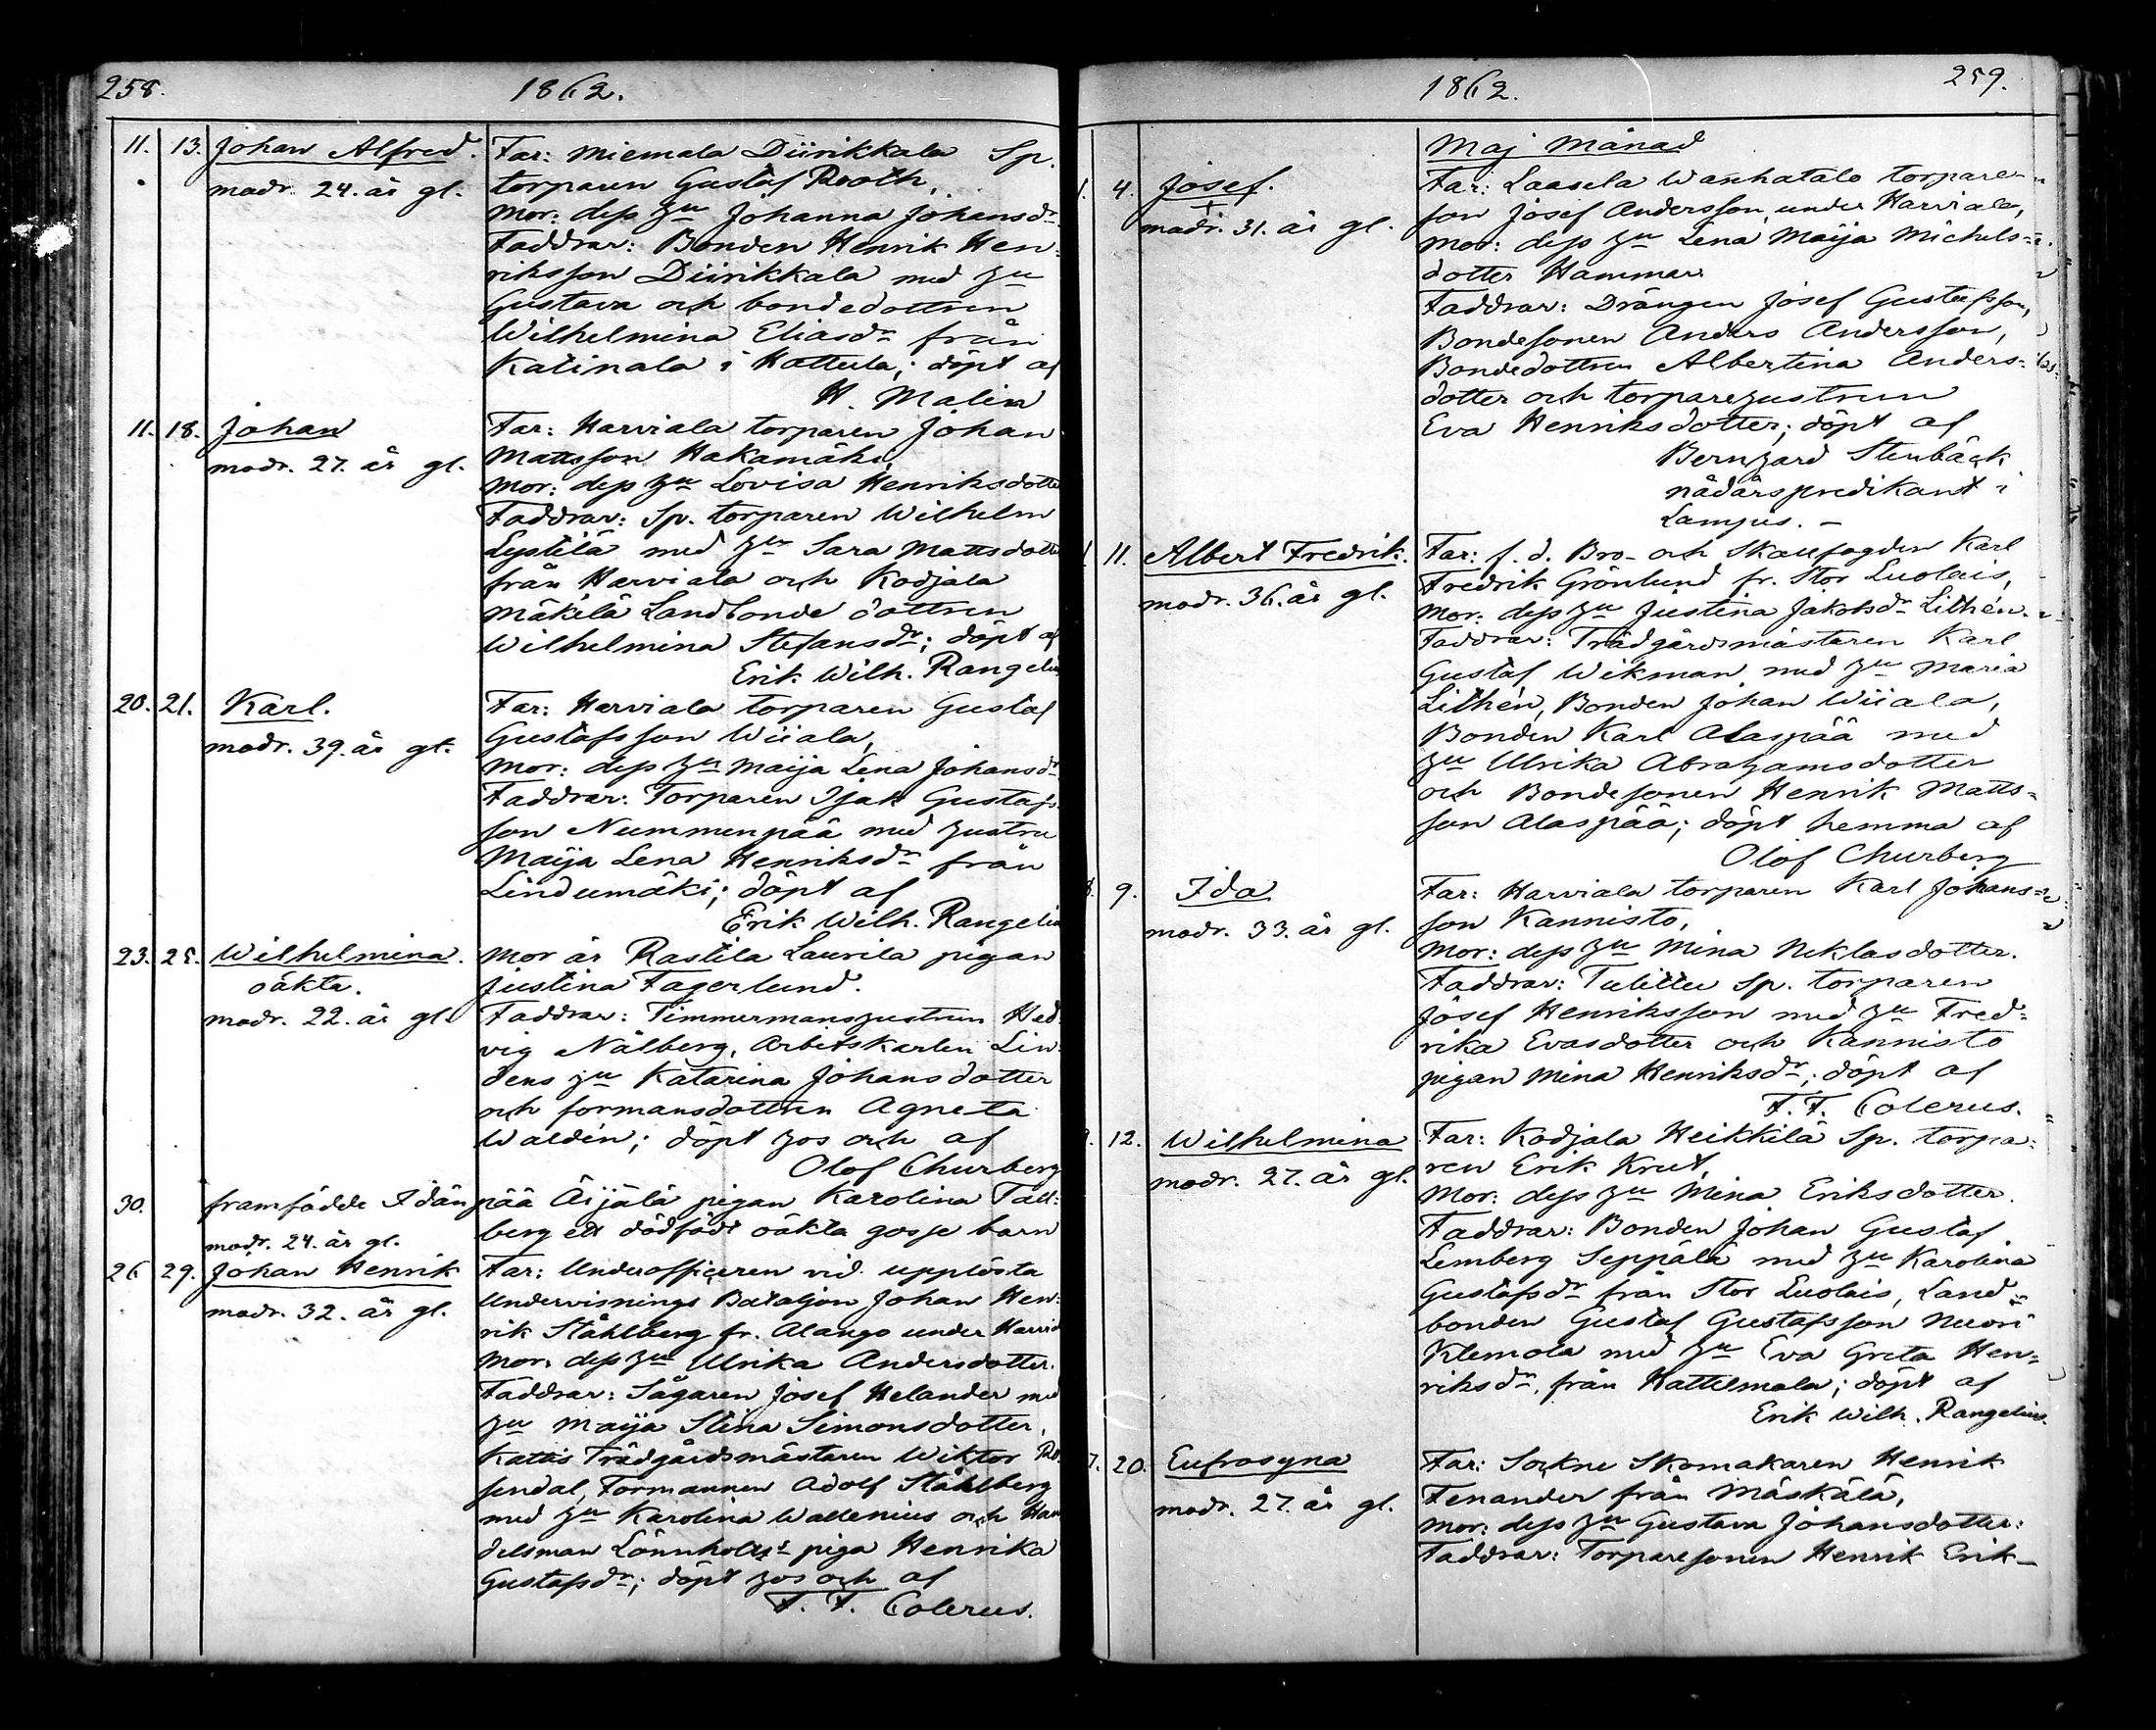 258.
1862.
11. 13. Johan Alfred.
modr. 24. år gl.
Far: Miemala Diirikkala Sp.
torparen Gustaf Rooth,
Mor: dess hu Johanna Johansdr
Faddrar: Bonden Henrik Hen-
riksson Diirikkala med hu
Gustava och bondedottren
Wilhelmina Eliasdr från
Katinala i Hattula; döpt af
H. Malin
11. 18. Johan
modr. 27. år gl.
Far: Harviala torparen Johan
Mattsson Hakamäki,
Mor: dess hu Lovisa Henriksdotter
Faddrar: Sp. torparen Wilhelm
Lystilä med hu Sara Mattsdotter
från Harviala och Kodjala
Mäkilä Landbonde dottren
Wilhelmina Stefansdr; döpt af
Erik Wilh. Rangelius
20. 21. Karl.
modr. 39. år gl.
Far: Harviala torparen Gustaf
Gustafsson Wiiala,
Mor: dess hu Maija Lena Johansdr
Faddrar: Torparen Isak Gustafs-
son Nummenpää med hustru
Maija Lena Henriksdr från
Lindumäki; döpt af
Erik Wilh. Rangelius
23. 25. Wilhelmina.
oäkta.
modr. 22. år gl.
Mor är Rastila Laurila pigan
Justina Fagerlund.
Faddrar: Timmermanshustrun Hed-
vig Nälberg, Arbetskarlen Lin-
dens hu Katarina Johansdotter
och formansdottren Agneta
Waldén; döpt hos och af
Olof Churberg
30. framfödde Idänpää Äijälä pigan Karolina Tall-
modr. 24. år gl.
berg ett dödfödt oäkta gosse barn
26 29. Johan Henrik
modr. 32. år gl.
Far: Underofficeren vid upplösta
Undervisnings Bataljon Johan Hen-
rik Ståhlberg fr. Alango under Harvia
Mor: dess hu Ulrika Andersdotter.
Faddrar: Sågaren Josef Helander med
hu Maija Stina Simonsdotter,
Kattis Trädgårdsmästaren Wiktor Ro-
sendal, Formannen Adolf Ståhlberg
med hu Karolina Wallenius och Han
delsman Lönnholtz's piga Henrika
Gustafsdr; döpt hos och af
F. F. Colerus.
1862.
259.
Maj Månad
1. 4. Josef.
modr. 31. år gl.
Far: Laasela Wanhatalo torpare-
son Josef Andersson, under Harviala,
Mor: dess hu Lena Maija Michels-
dotter Hammar
Faddrar: Drängen Josef Gustafsson,
Bondesonen Anders Andersson,
Bondedottren Albertina Anders-
dotter och torparehustrun
Eva Henriksdotter; döpt af
Bernhard Stenbäck
nådårspredikant i
Lampis. –
11. Albert Fredrik.
modr. 36. år gl.
Far: f. d. Bro- och Skallfogden Karl
Fredrik Grönlund fr. Stor Luolais,
Mor: dess hu Justina Jakobsdr Lithén.
Faddrar: Trädgårdsmästaren Karl
Gustaf Wikman med hu Maria
Lithén, Bonden Johan Wiiala,
Bonden Karl Alaspää med
hu Ulrika Abrahamsdotter
och Bondesonen Henrik Matts-
son Alaspää; döpt hemma af
Olof Churberg
8. 9. Ida
modr. 33. år gl.
Far: Harviala torparen Karl Johans-
son Kannisto,
Mor: dess hu Mina Niklasdotter.
Faddrar: Tulittu Sp. torparen
Josef Henriksson med hu Fred-
rika Evasdotter och Kannisto
pigan Mina Henriksdr; döpt af
F. F. Colerus.
12. Wilhelmina
modr. 27. år gl.
Far: Kodjala Heikkilä Sp. torpa-
ren Erik Krut,
Mor: dess hu Mina Eriksdotter.
Faddrar: Bonden Johan Gustaf
Lemberg Seppälä med hu Karolina
Gustafsdr från Stor Luolais, Land-
bonden Gustaf Gustafsson Nuori
Klemola med hu Eva Greta Hen-
riksdr, från Hattelmala; döpt af
Erik Wilh. Rangelius.
7. 20. Eufrosyna
modr. 27. år gl.
Far: Sockne Skomakaren Henrik
Fenander från Mäskälä,
Mor: dess hu Gustava Johansdotter.
Faddrar: Torparesonen Henrik Erik-